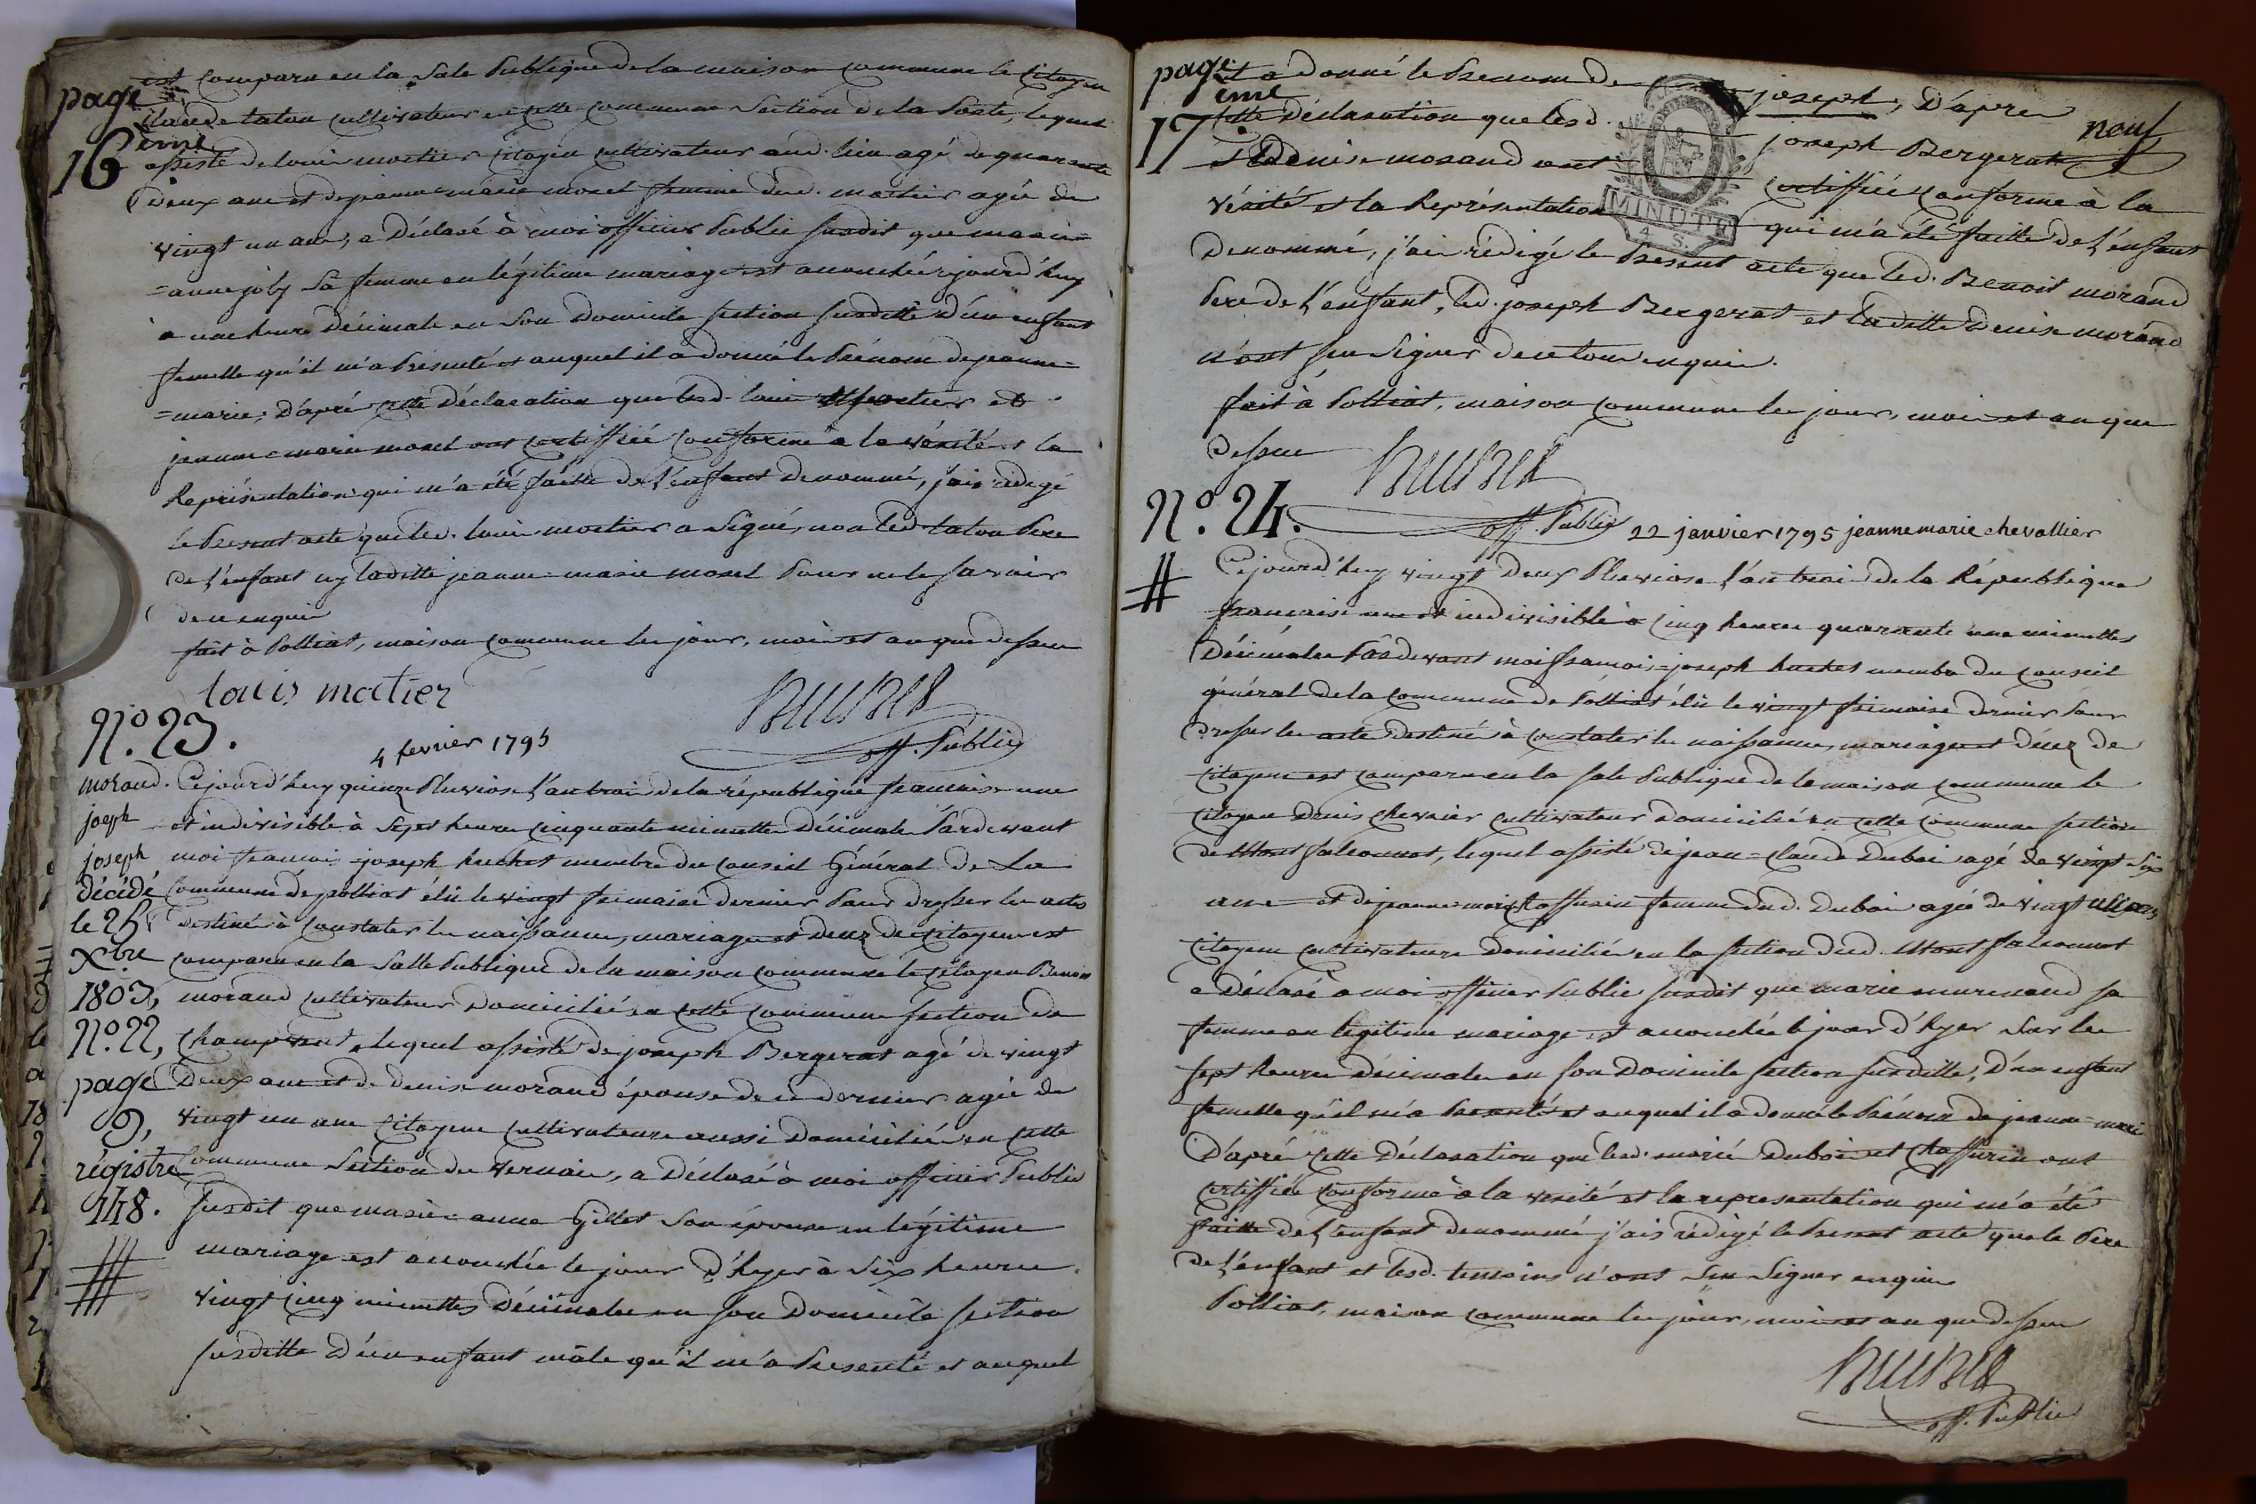 page
16
eme
est comparu en la Sale Publique de la maison commune le Citoyen
Claude taton cultivateur en cette commune Section de la Poste, lequel
assisté de louis mortier citoyen cultivateur aud. lieu agé de quarante
deux ans et de jeanne-marie morel femme dud. mortier agée de
vingt un ans, a Déclaré à moi officier Public susdit que marie=
=anne joly Sa femme en légitime mariage est accouchée cejourd'huy
à une heure Décimale en Son Domicile Section susditte D'un enfant
femelle qu'il m'a Présenté et auquel il a donné le Prénom de jeanne=
=marie; D'après cette Déclaration que lesd. louis mortier et
jeanne-marie morel ont certiffiée conforme à la vérité et la
Représentation qui m'a été faitte de l'enfant denommé, j'ais rédigé
le Présent acte que led. louis mortier a Signé, non led. taton Père
de l'enfant ny laditte jeanne-marie morel Pour ne le savoir
de ce enquis
fait à Polliat, maison commune les jour, mois et an que dessus
louis matier
off. Public
N.º 23.
4 fevrier 1795
morand
joeph
joseph
décédé
le 25
Xbre
1803,
N.º 22,
page
9,
régistre
148.
Cejourd'huy quinze Pluviose l'an trois de la république francaise une
et indivisible à Sept heures cinquante minuttes Décimales Pardevant
moi francois-joseph huchet membre du conseil Général de La
Commune de polliat élu le vingt frimaire dernier Pour dresser les actes
destiné à constater les naissances, mariages et Decez des Citoyens est
comparu en la Salle Publique de la maison commune le Citoyen Benoit
morand cultivateur Domicilié en cette commune section de
Champvent, lequel assisté de joseph Bergerat agé de vingt
Deux ans et de denise morand épouse de ce dernier agée de
vingt un ans Citoyens cultivateurs aussi Domiciliés en cette
Commune Section du Vernais, a Déclaré à moi officier Public
Susdit que marie-anne Gillet Son épouse en légitime
mariage est accouchée le jour d'hyer à Six heures
vingt cinq minuttes Décimales en son Domicile section
susditte D'un enfant mâle qu'il m'a Présenté et auquel
page
17
eme
il a donné le Prenom de joseph; D'après
neuf
cette Déclaration que lesd. joseph Bergerat
et Denise morand ont certiffiée conforme à la
vérité et la Représentation qui m'a été faitte de l'enfant
MINUTE
4. S.
denommé, j'ais rédigé le Présent acte que led. Benoit morand
Père de l'enfant, led. joseph Bergerat et laditte Denise morand
n'ont su Signer de ce tous enquis.
fait à Polliat, maison commune les jour, mois et an que
dessus
off. Public
N.º 24.
22 janvier 1795 jeanne marie chevallier
Cejourd'huy vingt deux Pluviose l'an trois de la République
francaise une et indivisible à Cinq heures quarante une minuttes
Décimales Pardevant moi francois-joseph huchet membre du conseil
général de la commune de Polliat élu le vingt frimaire dernier Pour
dresser les actes destiné à constater les naissances, mariages et décez des
citoyens est comparu en la sale Publique de la maison commune le
citoyen denis chevrier cultivateur Domicilié en cette commune section
de Mont falconnet, lequel assisté de jean-Claude Dubois agé de vingt-six
ans et de jeanne-marie Chaffurin femme dud. Dubois agée de vingt
Citoyens cultivateurs Domiciliés en la section dud. Mont falconnet
a Déclaré à moi officier Public susdit que marie maremand sa
femme en légitime mariage est accouchée le jour d'hyer Sur les
sept heures décimales en son Domicile section susditte, D'un enfant
femelle qu'il m'a Présenté et auquel il a donné le Prénom de jeanne-marie
D'après cette Déclaration que lesd. mariés Dubois et Chaffurin ont
certiffiée conforme à la vérité et la representation qui m'a été
faitte de l'enfant denommé j'ais rédigé le Present acte que le Père
de l'enfant et lesd. temoins n'ont Su Signer enquis
Polliat, maison commune les jour, mois et an que dessus
off. Public